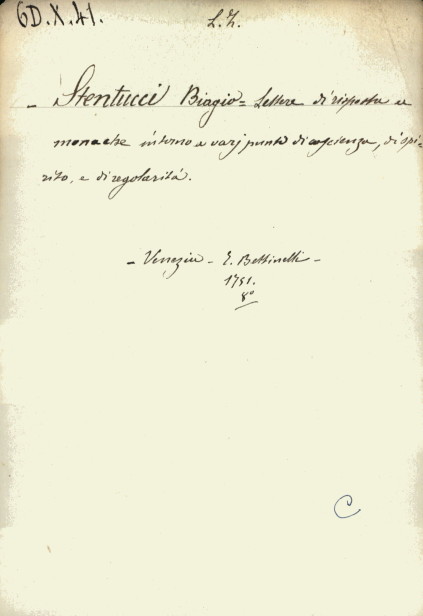 6D.X.41.
L.Z.
- Stentucci Biagio = Lettere di risposta a
monache intorno a varj punti di coscienza, di spi=
rito, e di regolarità.
- Venezia - T. Bettinelli -
1751.
8º
C